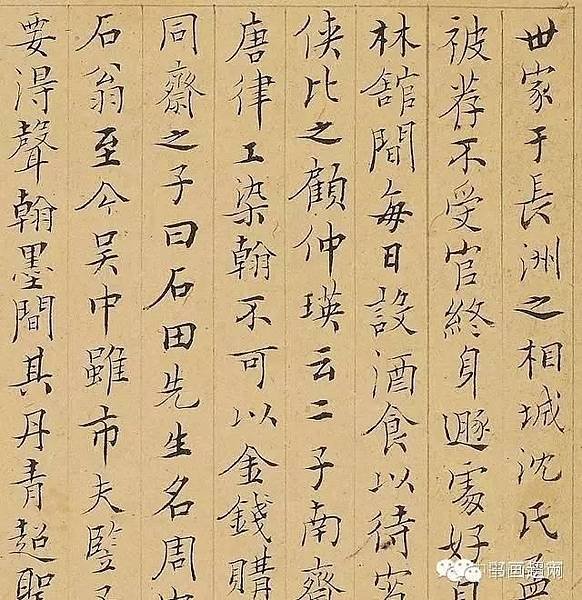 世家于長洲之相城沈氏孟
被荐不受官終身遯處好自
林舘間每日設酒食以待客
侠比之顧仲瑛云二子南齋
唐律工染翰不可以金錢購
同齋之子曰石田先生名周字
石翁至今吳中雖市夫豎子
要淂聲翰墨間其丹青超聖